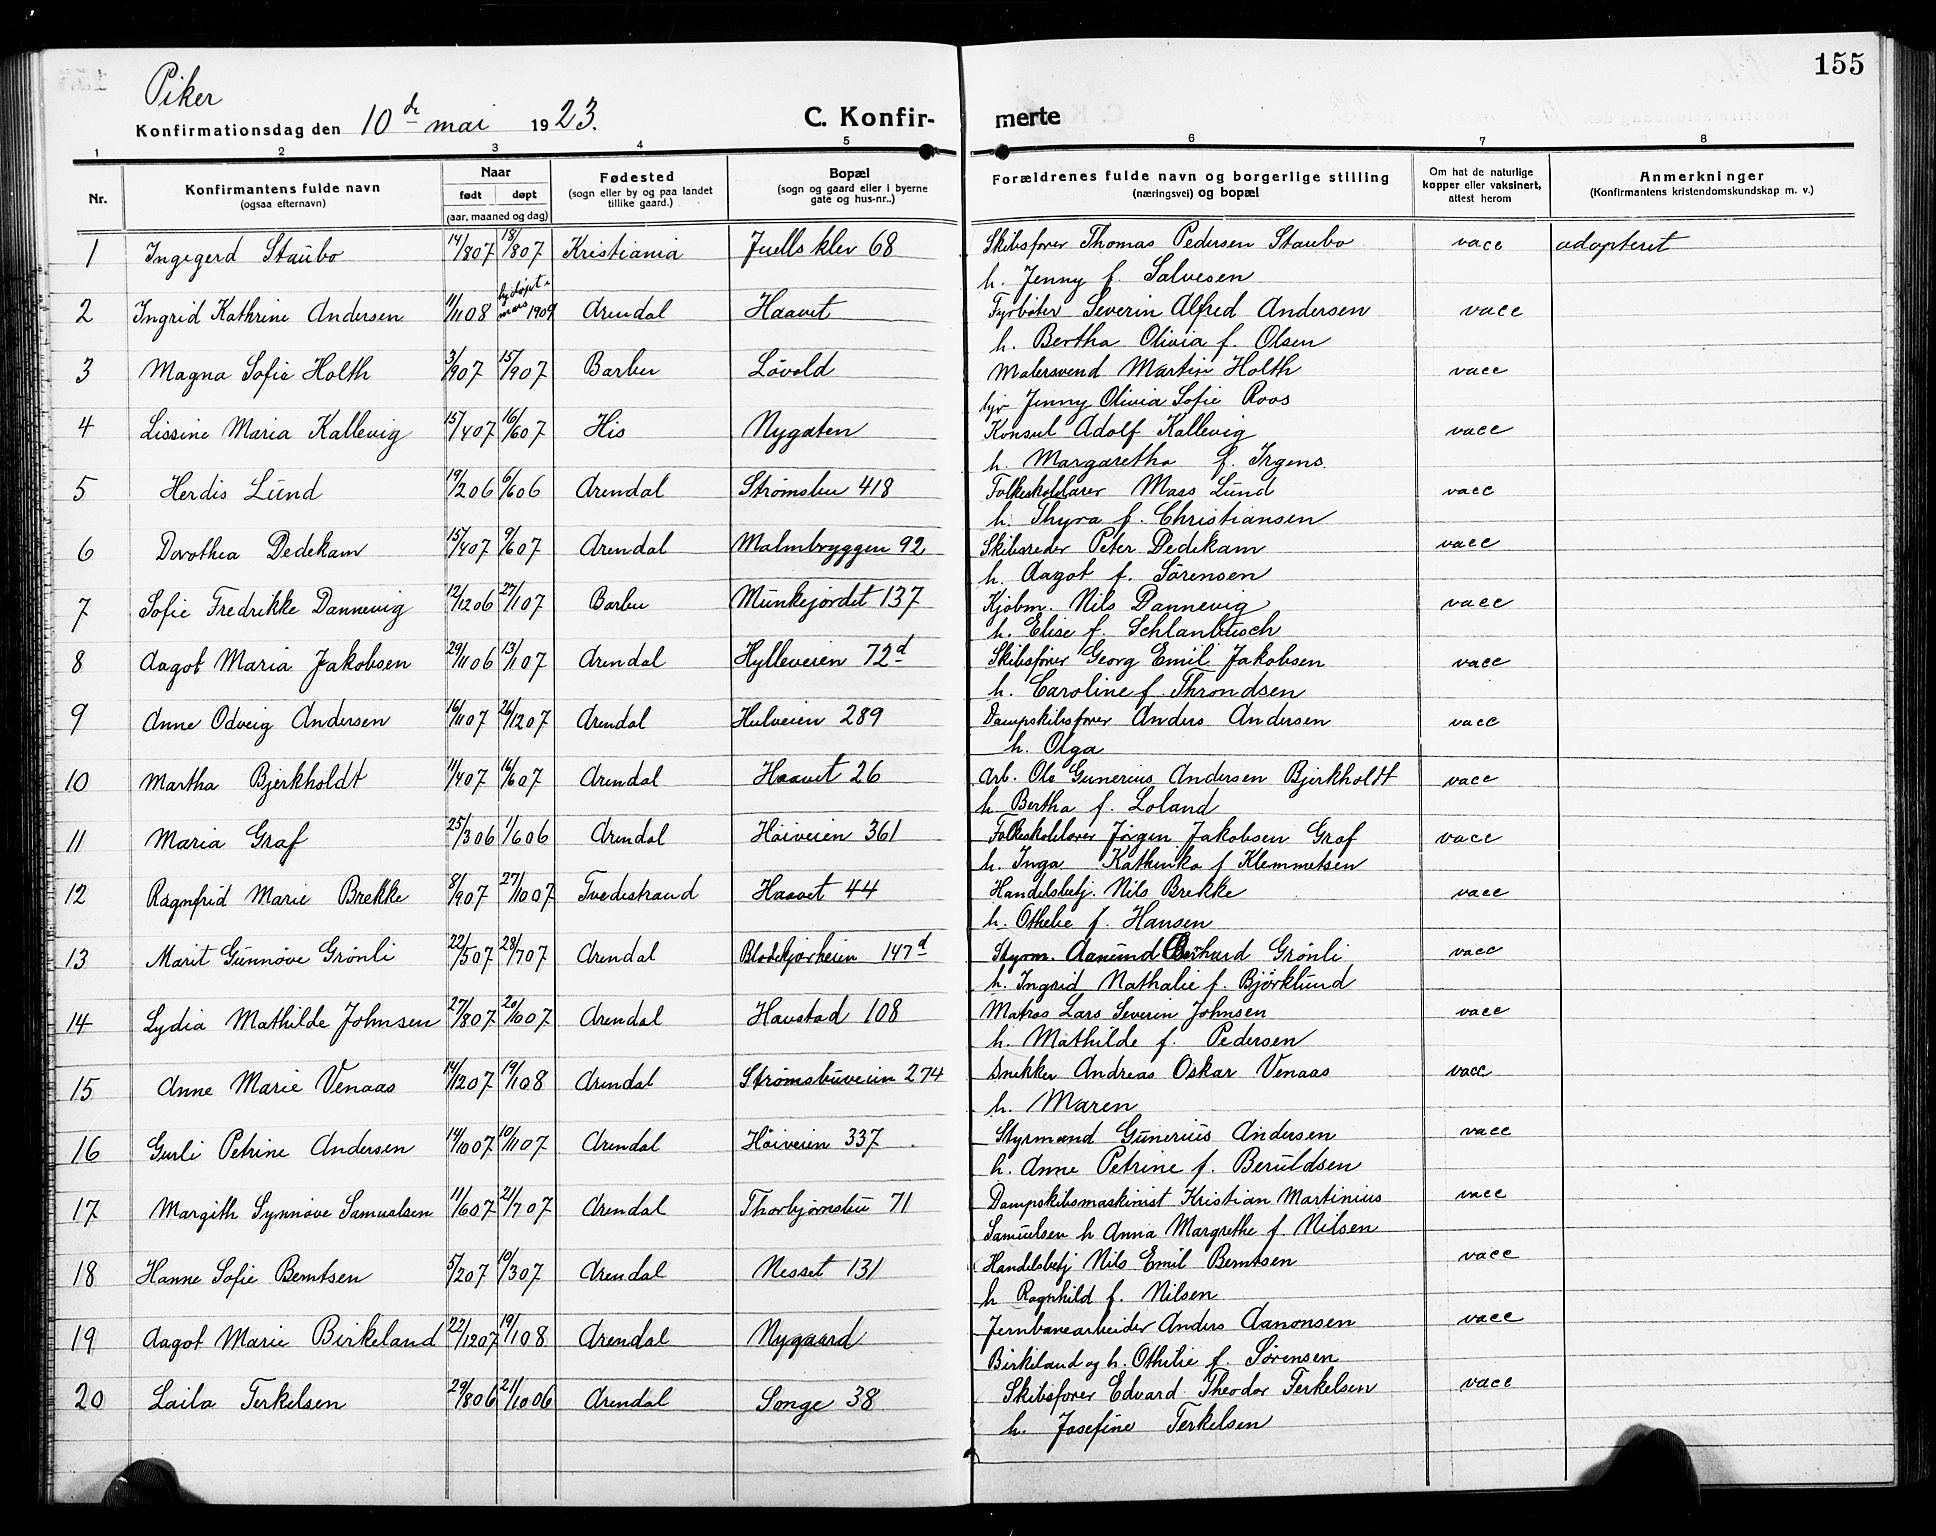 155
Piker
Konfirmationsdag den 10de mai 1923.
C. Konfir- merte
1 2 3 4 5 6 7 8
Nr.
Konfirmantens fulde navn
(ogsaa efternavn)
Naar
født døpt
(aar, maaned og dag)
Fødested
(sogn eller by og paa landet
tillike gaard.)
Bopæl
(sogn og gaard eller i byerne
gate og hus-nr..)
Forældrenes fulde navn og borgerlige stilling
(næringsvei) og bopæl
Om hat de naturlige
kopper eller vaksinert,
attest herom
Anmerkninger
(Konfirmantens kristendomskundskap m. v.)
1 Ingegerd Staubo 14/8 07 18/8 07 Kristiania Juells klev 68 Skibsfører Thomas Pedersen Staubo vacc adopteret
h. Jenny f. Salvesen
2 Ingrid Kathrine Andersen 11/1 08 hj.døpt mars 1909 Arendal Haavet Fyrbøter Severin Alfred Andersen vacc
h. Bertha Olivia f. Olsen
3 Magna Sofie Holth 3/9 07 15/9 07 Barbu Løvold Malersvend Martin Holth vacc
Jenny Olivia Sofie Roos
4 Lissine Maria Kallevig 15/4 07 16/6 07 His Nygaten Konsul Adolf Kallevig vacc
h. Margaretha f. Irgens
5 Herdis Lund 19/2 06 6/6 06 Arendal Strømsbu 418 Folkeskolelærer Mass Lund vacc
h. Thyra f. Christiansen
6 Dorothea Dedekam 15/4 07 9/6 07 Arendal Malmbryggen 92 Skibsreder Peter Dedekam vacc
h. Aagot f. Sørensen
7 Sofie Fredrikke Dannevig 12/12 06 27/1 07 Barbu Munkejordet 137 Kjøbm. Nils Dannevig vacc
h. Elise f. Schlanbusch
8 Aagot Maria Jakobsen 29/11 06 13/1 07 Arendal Hylleveien 72d Skibsfører Georg Emil Jakobsen vacc
h. Caroline f. Throndsen
9 Anne Odveig Andersen 16/11 07 26/12 07 Arendal Hulveien 289 Dampskibsfører Anders Andersen vacc
h. Olga
10 Martha Bjerkholdt 11/4 07 16/6 07 Arendal Haavet 26 Arb. Ole Gunerius Andersen Bjerkholdt vacc
h. Bertha f. Loland
11 Maria Graf 25/3 06 1/6 06 Arendal Høiveien 361 Folkeskolelærer Jørgen Jakobsen Graf vacc
h. Inga Kathinka f. Klemmetsen
12 Ragnfrid Marie Brekke 8/9 07 27/10 07 Tvedestrand Haavet 44 Handelsbetj. Nils Brekke vacc
h. Othelie f. Hansen
13 Marit Gunnøve Grønli 22/5 07 28/7 07 Arendal Blødekjærheien 147d Styrm. Aanund Gerhard Grønli vacc
h. Ingrid Nathalie f. Björklund
14 Lydia Mathilde Johnsen 27/8 07 20/10 07 Arendal Havstad 108 Matros Lars Severin Johnsen vacc
h. Mathilde f. Pedersen
15 Anne Marie Venaas 14/12 07 19/1 08 Arendal Strømsbuveien 274 Snekker Andreas Oskar Venaas vacc
h. Maren
16 Gurli Petrine Andersen 14/10 07 10/11 07 Arendal Høiveien 337 Styrmand Gunerius Andersen vacc
h. Anne Petrine f. Beruldsen
17 Margith Synnøve Samuelsen 11/6 07 21/7 07 Arendal Thorbjørnsbu 71 Dampskibsmaskinist Kristian Martinius vacc
Samuelsen h Anna Margrethe f. Nilsen
18 Hanne Sofie Berntsen 5/2 07 10/3 07 Arendal Nesset 131 Handelsbetj Nils Emil Berntsen vacc
h Ragnhild f. Nilsen
19 Aagot Marie Birkeland 22/12 07 19/1 08 Arendal Nygaard Jernbanearbeider Anders Aanonsen vacc
Birkeland og h. Othilie f. Sørensen
20 Laila Terkelsen 29/8 06 21/10 06 Arendal Songe 38 Skibsfører Edvard Theodor Terkelsen vacc
h. Josefine Terkelsen